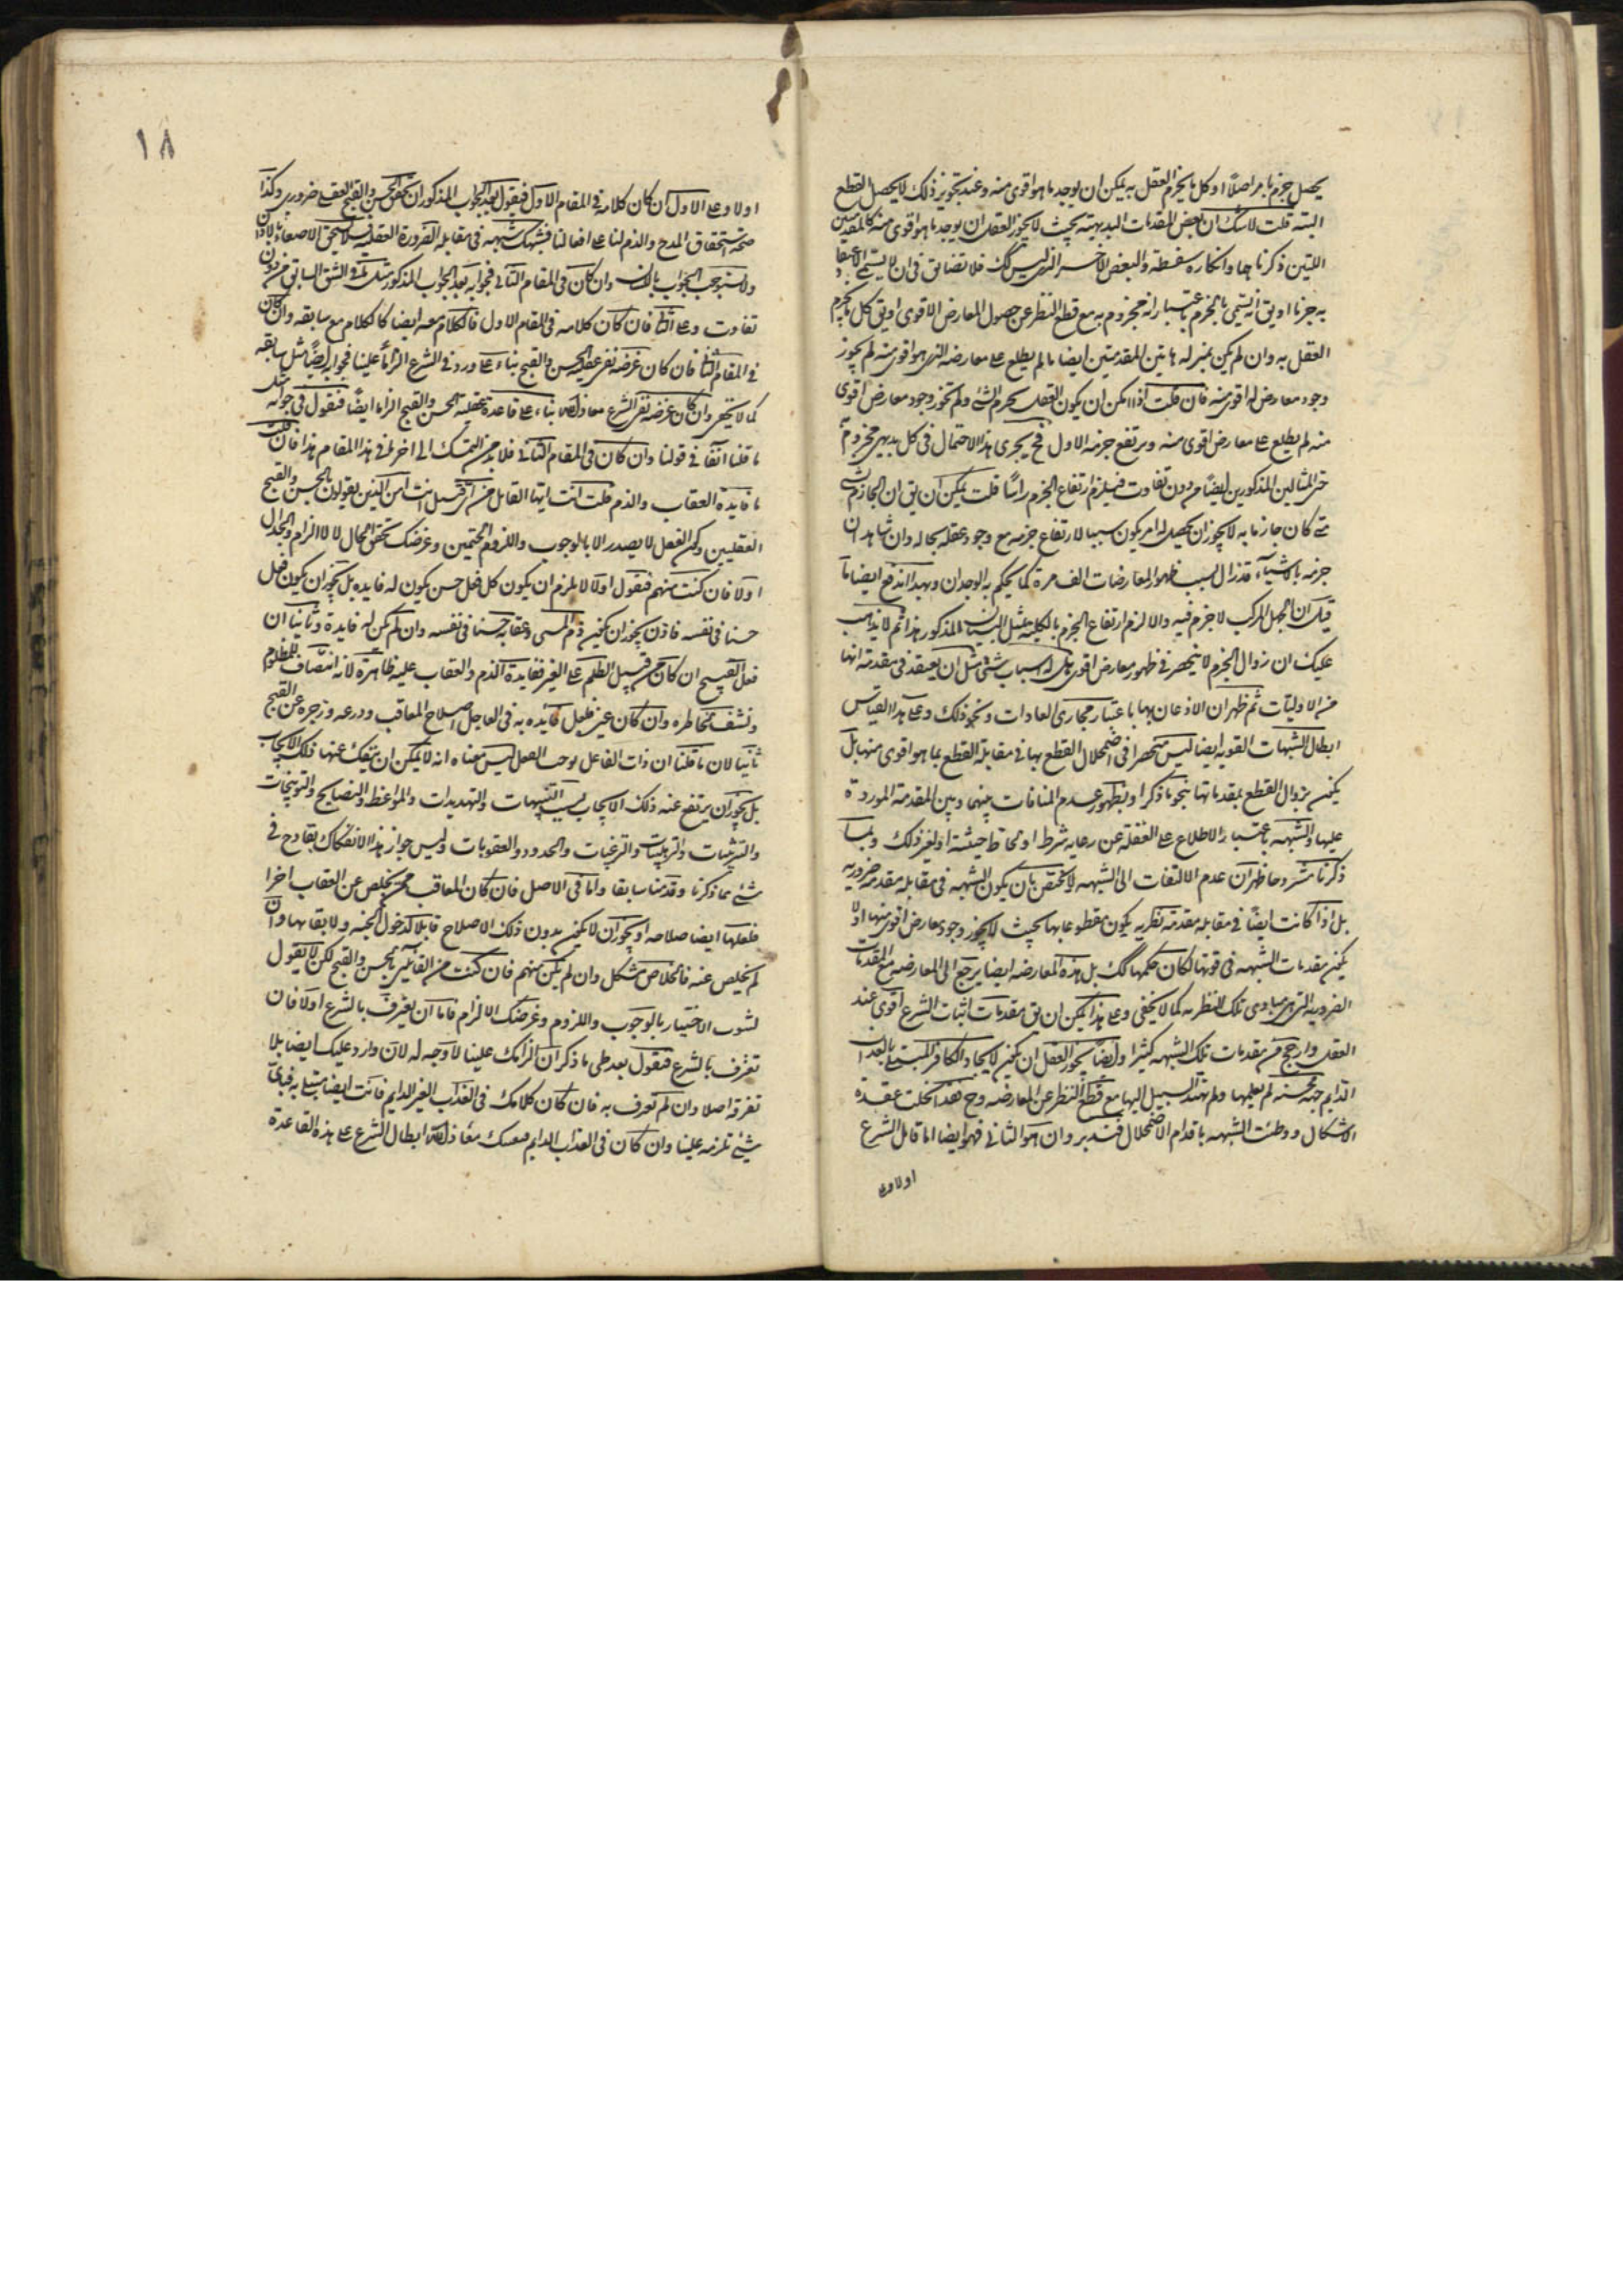 يحصل جزم بامر اصلا او كل ما يجزم العقل به يمكن ان يوجد ما هو اقوى منه وعند تجويز ذلك لا يحصل القطع
البتة قلت لا شك ان بعض المقدمات البديهية بحيث لا يجوز العقل ان يوجد ما هو اقوى منه كالمقدمتين
اللتين ذكرناهما وانكاره سفسطة والبعض الاخر الذى ليس كك فلا تضايق فى ان لا يسمى الاعتقاد
به جزما او يق انه يسمى بالجزم باعتبار انه مجزوم به مع قطع النظر عن حصول المعارض الاقوى او يق كل ما يجزم
العقل به وان لم يكن بمنزلة هاتين المقدمتين ايضا ما لم يطلع على معارضه الذى هو اقوى منه لم يجوز
وجود معارض له اقوى منه فان قلت اذا امكن ان يكون العقل يجزم بشئ ولم يجوز وجود معارض اقوى
منه ثم يطلع على معارض اقوى منه ويرتفع جزمه الاول فح يجرى هذا الاحتمال فى كل بديهى مجزوم
حتى المثالين المذكورين ايضا من دون تفاوت فيلزم ارتفاع الجزم راسا قلت يمكن ان يق ان الجازم بشئ
متى كان جازما به لا يجوز ان يحصل له امر يكون سببا لارتفاع جزمه مع وجود عقله بحاله وان شاهد ان
جزمه بالاشياء قد زال بسبب ظهور المعارضات الف مرة كما يحكم به الوجدان وبهذا اندفع ايضا ما
قيل ان الجهل المركب لا جزم فيه والا لزم ارتفاع الجزم بالكلية بمثل البيان المذكور هذا ثم لا يذهب
عليك ان زوال الجزم لا ينحصر فى ظهور معارض اقوى بل له اسباب شتى مثل ان يعتقد فى مقدمة انها
من الاوليات ثم ظهر ان الاذعان بها باعتبار مجارى العادات ونحو ذلك وعلى هذا القياس
ابطال الشبهات القوية ايضا ليس منحصرا فى اضمحلال القطع بها فى مقابلة القطع بما هو اقوى منها بل
يمكن بزوال القطع بمقدماتها بنحو ما ذكر او بظهور عدم المنافات بينها وبين المقدمة الموردة
عليها والشبهة باعتبار الاطلاع على الغفلة عن رعاية شرط او لحاظ حيثية او لغير ذلك وبما
ذكرنا مشروحا ظهر ان عدم الالتفات الى الشبهة لا يختص بان يكون الشبهة فى مقابلة مقدمة ضرورية
بل اذا كانت ايضا فى مقابلة مقدمة نظرية يكون مقطوعا بها بحيث لا يجوز وجود معارض اقوى منها او لا
يكون مقدمات الشبهة فى قوتها لكان حكمها كك بل هذه المعارضة ايضا يرجع الى المعارضة مع المقدمات
الضرورية التى هى مبادى تلك النظرية كما لا يخفى وعلى هذا يمكن ان يق مقدمات اثبات الشرع اقوى عند
العقل وارجح من مقدمات تلك الشبهة كثيرا وايضا يجوز العقل ان يكون لايجاد الكافر المبتلى بالعذاب
الدايم جهة محسنة لم يعلمها ولم يهتد السبيل اليها مع قطع النظر عن المعارضة وح فقد انحلت عقدة
الاشكال ووطئت الشبهة باقدام الاضمحلال فتدبر وان هو الثانى فهو ايضا اما قايل بالشرع
اولا وعلى
١٨
اولا وعلى الاول ان كان كلامه فى المقام الاول فيقول بعد الجواب المذكور ان تحقق الحسن والقبح العقلى ضرورى وكذا
صحة استحقاق المدح والذم لنا على افعالنا فشبهتك شبهة فى مقابلة الضرورة العقلية فلا يستحق الاصغاء بالاذان
ولا يستوجب الجواب باللسان وان كان فى المقام الثانى فجوابه بعد الجواب المذكور مثل ما مر فى الشق السابق من دون
تفاوت وعلى الثانى فان كان كلامه فى المقام الاول فالكلام معه ايضا كالكلام مع سابقه وان كان
فى المقام الثانى فان كان غرضه نفى عقلية الحسن والقبح بناء على ما ورد فى الشرع الزاما علينا فجوابه ايضا مثل سابقه
كما لا يخفى وان كان غرضه نفى الشرع معاذ الله بناء على قاعدة عقلية الحسن والقبح الزاما ايضا فنقول فى جوابه مثل
ما قلنا آنفا فى قولنا وان كان فى المقام الثانى فلا بد من التمسك الى اخره فى هذا المقام هذا فان قلت
ما فايدة العقاب والذم قلت انت ايها القايل من اى قبيل انت امن الذين يقولون بالحسن والقبح
العقليين وكون الفعل لا يصدر الا بالوجوب واللزوم الحتميين وغرضك تحقق الحال لا الالزام والجدال
اولا فان كنت منهم فنقول اولا لا يلزم ان يكون كل فعل حسن يكون له فايدة بل يجوز ان يكون فعل
حسنا فى نفسه فاذن يجوز ان يكون ذم المسىء وعقابه حسنا فى نفسه وان لم يكن له فايدة وثانيا ان
فعل القبيح ان كان من قبيل الظلم على الغير ففايدة الذم والعقاب عليه ظاهرة لانه انتصاف للمظلوم
وتشف لخاطره وان كان غير ظلم ففائدة به فى العاجل اصلاح المعاقب وردعه وزجره عن القبيح
ثانيا لان ما قلنا ان ذات الفاعل يوجب الفعل ليس معناه انه لا يمكن ان ينفك عنها ذلك الايجاب
بل يجوز ان يرتفع عنه ذلك الايجاب بسبب التنبيهات والتهديدات والمواعظ والنصايح والتوبيخات
والترهيبات والترغيبات والحدود والعقوبات وليس جواز هذا الانفكاك بقادح فى
شئ مما ذكرنا وقدمنا سابقا واما فى الاصل فان كان المعاقب ممن يخلص عن العقاب اخرا
فلعلها ايضا صلاحه او يجوز ان لا يكون بدون ذلك الاصلاح قابلا لدخول الجنة ولا بقائها وان
لم يخلص عنه فالخلاص مشكل وان لم يكن منهم فان كنت من القائلين بالحسن والقبح لكن لا تقول
لشوب الاختيار بالوجوب واللزوم وغرضك الالزام فاما ان يعترف بالشرع اولا فان
تعترف بالشرع فنقول بعد طى ما ذكر ان الزامك علينا لا وجه له لانه وارد عليك ايضا بلا
تفرقة اصلا وان لم تعترف به فان كان كلامك فى العذاب الغير الدايم فانت ايضا مبتلى به فباى
شئ تلزمه علينا وان كان فى العذاب الدايم فمعك معاذ الله ابطال الشرع على هذه القاعدة